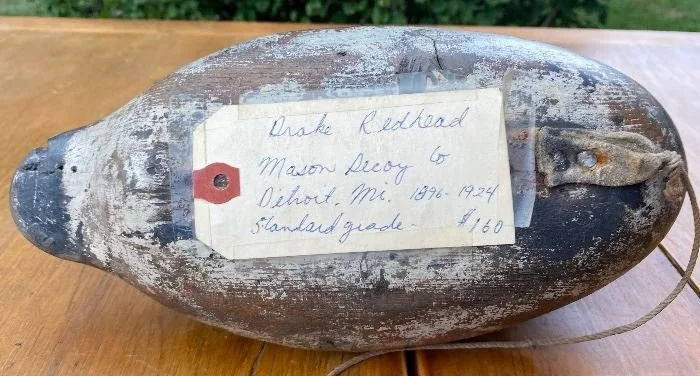 Drake Redhead
Mason Decoy Co
Detroit, Mi. 1896-1924
Standard grade - $160